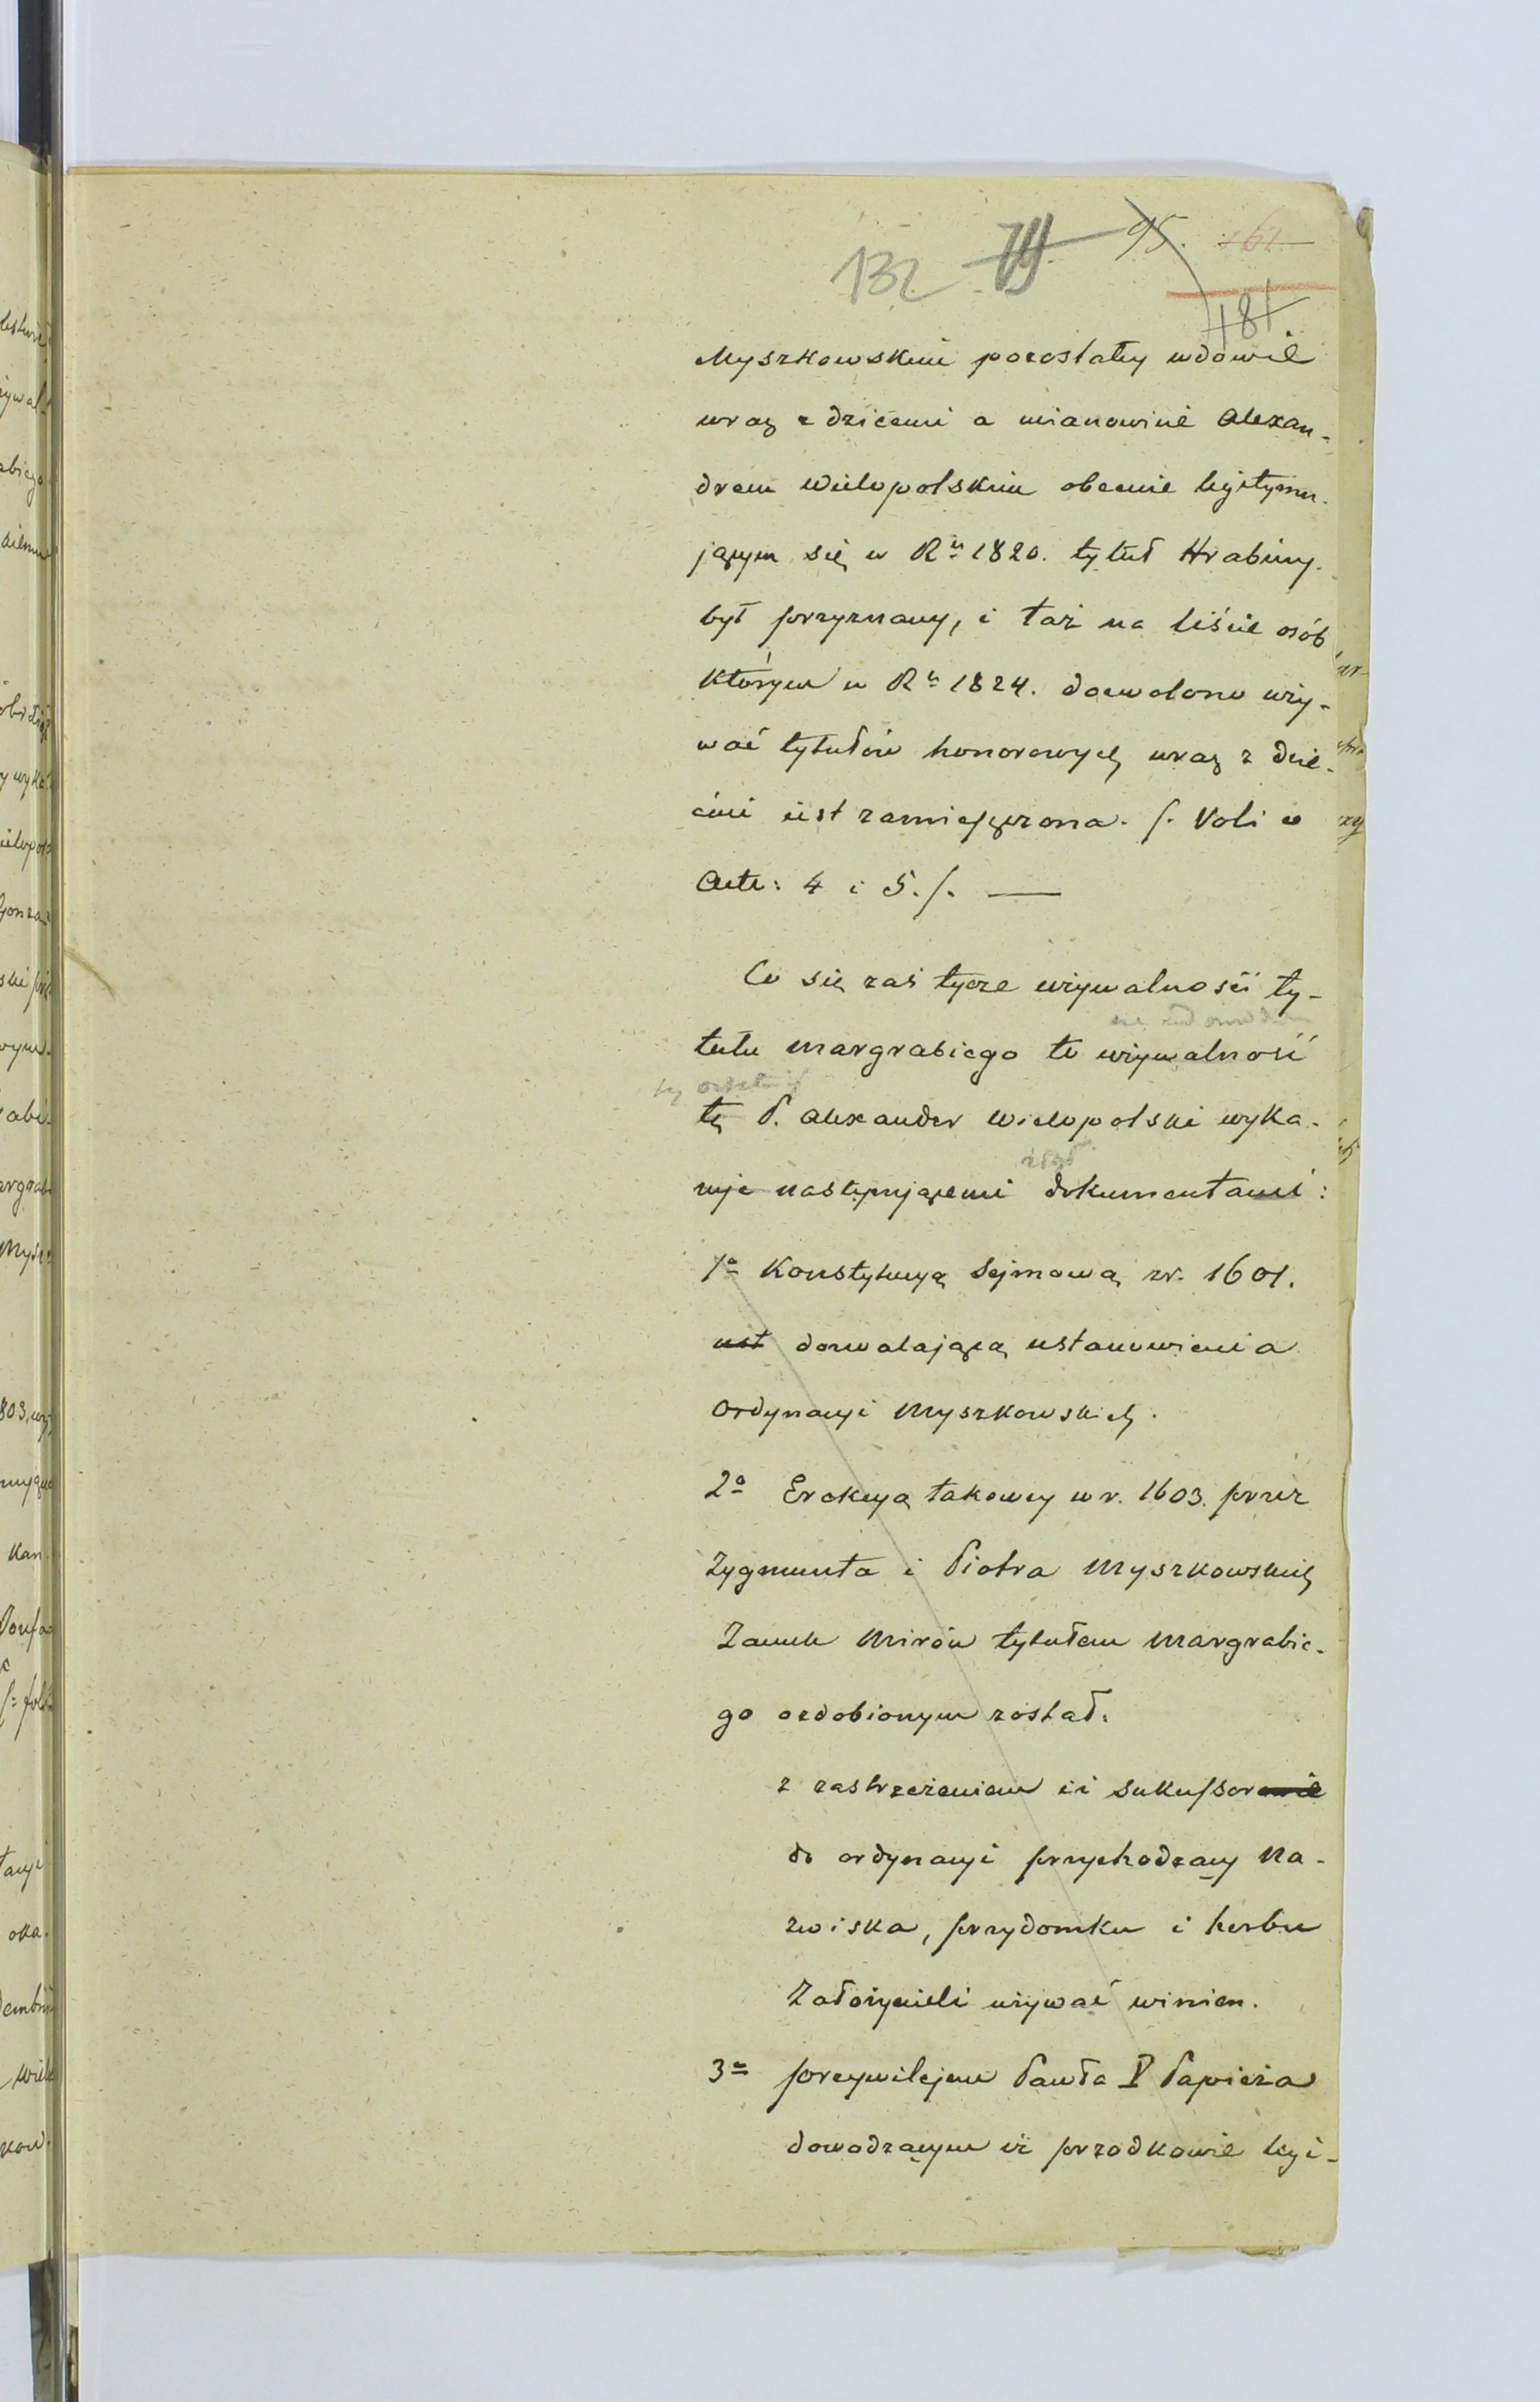 132 79. 95. 161
181
Myszkowskim pozostałey wdowie
wraz z dziećmi a mianowicie Alexan-
drem Wielopolskim obecnie legitymu-
jącym się w Ru 1820. tytuł Hrabiny
był przyznany, i taż na liście osób
którym w Ru 1824. dozwolono uży-
wać tytułów honorowych wraz z dzie-
ćmi iest zamieszczona. /. Vol: w
Acte: 4 i 5./. —
Co się zaś tycze używalności ty-
tułu Margrabiego to używalność
tę P. Alexander Wielopolski wyka-
zuje następującemi dokumentami:
1o Konstytucyą Sejmową z r. 1601.
ust dozwalającą ustanowienia
Ordynacyi Myszkowskich.
2o Erekcyą takowey w r. 1603. przez
Zygmunta i Piotra Myszkowskich
Zamek Mirów tytułem Margrabie-
go ozdobionym został.
z zastrzeżeniem iż sukussorowie
do ordynacyi przychodzący na-
zwiska, przydomku i herbu
Założycieli używać winien.
3o przywilejem Pawła V Papieża
dowodzącym iż przodkowie legi-